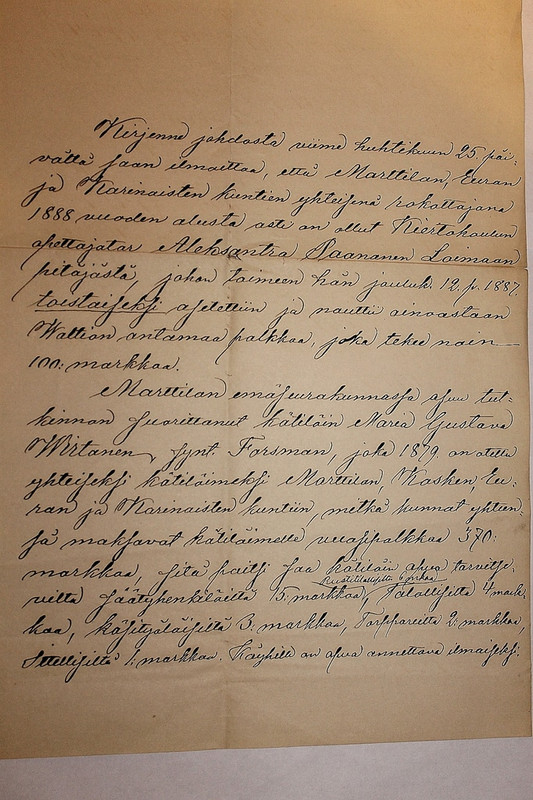 Kirjenne johdosta viime huhtikuun 25. päi-
vältä saan ilmoittaa, että Marttilan, Euran
ja Karinaisten kuntien yhteisenä rokottajana
1888 vuoden alusta asti on ollut Kiertokoulun
opettajatar Aleksantra Paananen Loimaan
pitäjästä, johon toimeen hän jouluk. 12. p. 1887.
toistaiseksi asetettiin ja nauttii ainoastaan
Waltion antamaa palkkaa, joka tekee noin
100: markkaa.
Marttilan emäseurakunnassa asuu tut-
kinnon suorittanut kätilöin Maria Gustava
Wirtanen, synt. Forsman, joka 1879 on otettu
yhteiseksi kätilöimeksi Marttilan, Kosken, Eu-
ran ja Karinaisten kuntiin, mitkä kunnat yhteen-
sä maksavat kätilöimelle vuosipalkkaa 370:
markkaa, sitä paitsi saa kätilöin apua tarvitse-
vilta säätyhenkilöiltä 15: markkaa, Rustitilallisilta 6 markaa, Talollisilta 4 mark-
kaa, käsityöläisiltä 3: markkaa, Torppareilta 2: markkaa,
Itsellisiltä 1: markkaa. Köyhille on apua annettava ilmaiseksi.